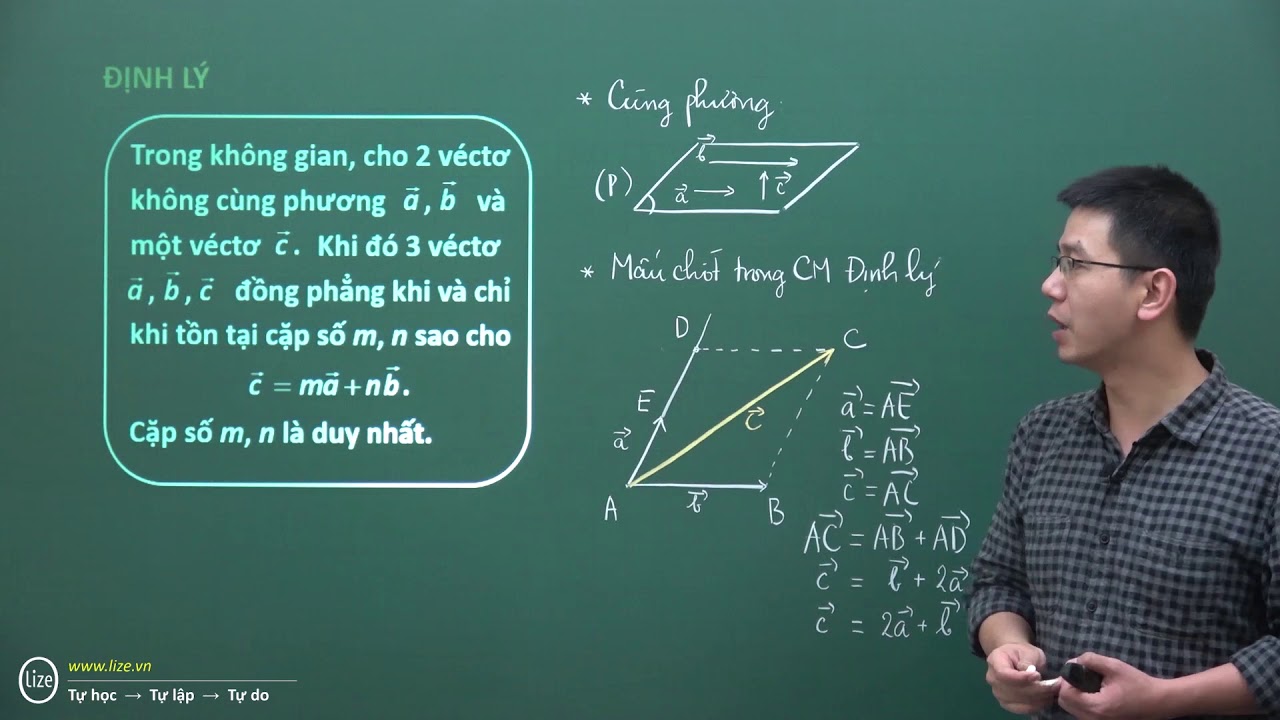 ĐỊNH LÝ
Trong không gian, cho 2 véctơ
không cùng phương a⃗, b⃗ và
một véctơ c⃗. Khi đó 3 véctơ
a⃗, b⃗, c⃗ đồng phẳng khi và chỉ
khi tồn tại cặp số m, n sao cho
c⃗ = ma⃗ + nb⃗.
Cặp số m, n là duy nhất.
* Cùng phương
b⃗
(P)
a⃗
c⃗
* Mấu chốt trong CM Định lý
D
C
E
a⃗
c⃗
A
b⃗
B
a⃗ = AE⃗
b⃗ = AB⃗
c⃗ = AC⃗
AC⃗ = AB⃗ + AD⃗
c⃗ = b⃗ + 2a⃗
c⃗ = 2a⃗ + b⃗
lize
www.lize.vn
Tự học → Tự lập → Tự do